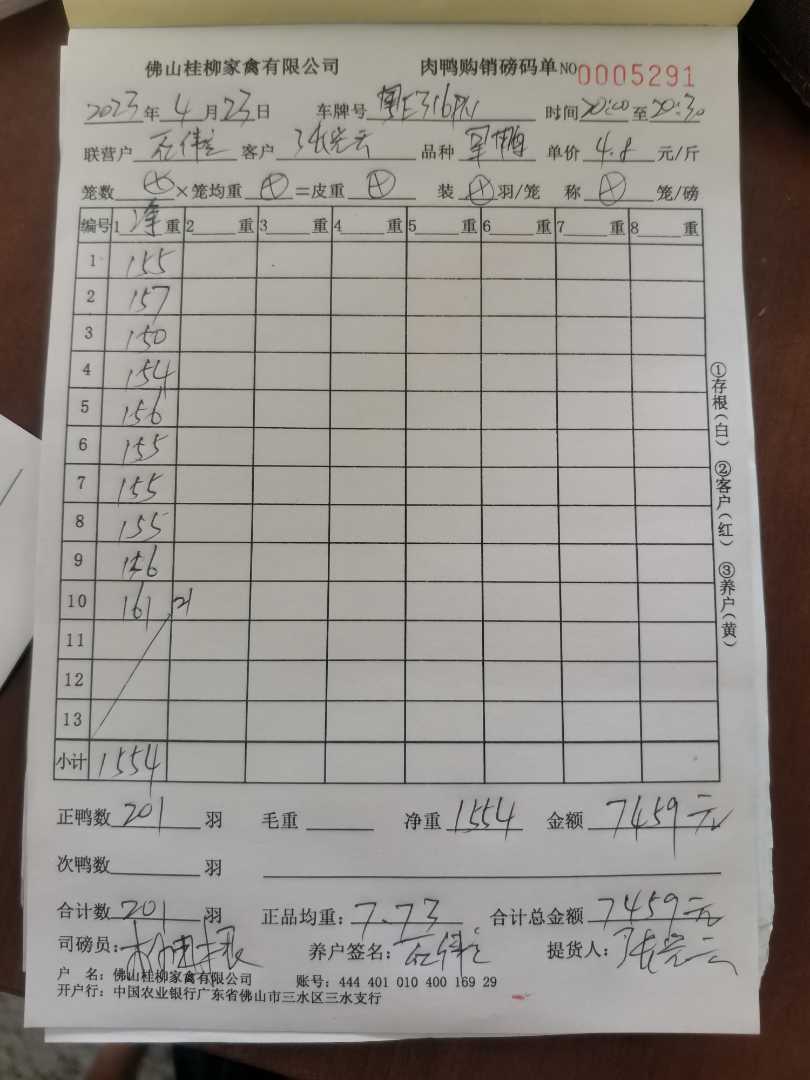 佛山桂柳家禽有限公司 肉鸭购销磅码单 NO 0005291
2023年4月23日 车牌号 粤E316PN 时间20:00至20:30
联营户 石伟 客户 张 云 品种 单价 4.8 元/斤
笼数 ⊕ ×笼均重 ⊕ =皮重 ⊕ 装 ⊕ 羽/笼 称 ⊕ 笼/磅
编号 1净重 2 重 3 重 4 重 5 重 6 重 7 重 8 重
1 155
2 157
3 150
4 154
5 156
6 155
7 155
8 155
9 156
10 161 21
11
12
13
小计 1554
①存根(白) ②客户(红) ③养户(黄)
正鸭数 201 羽 毛重 净重 1554 金额 7459元
次鸭数 羽
合计数 201 羽 正品均重: 7.73 合计总金额 7459元
司磅员: 养户签名: 石伟 提货人: 张 云
户 名: 佛山桂柳家禽有限公司 账号: 444 401 010 400 169 29
开户行: 中国农业银行广东省佛山市三水区三水支行